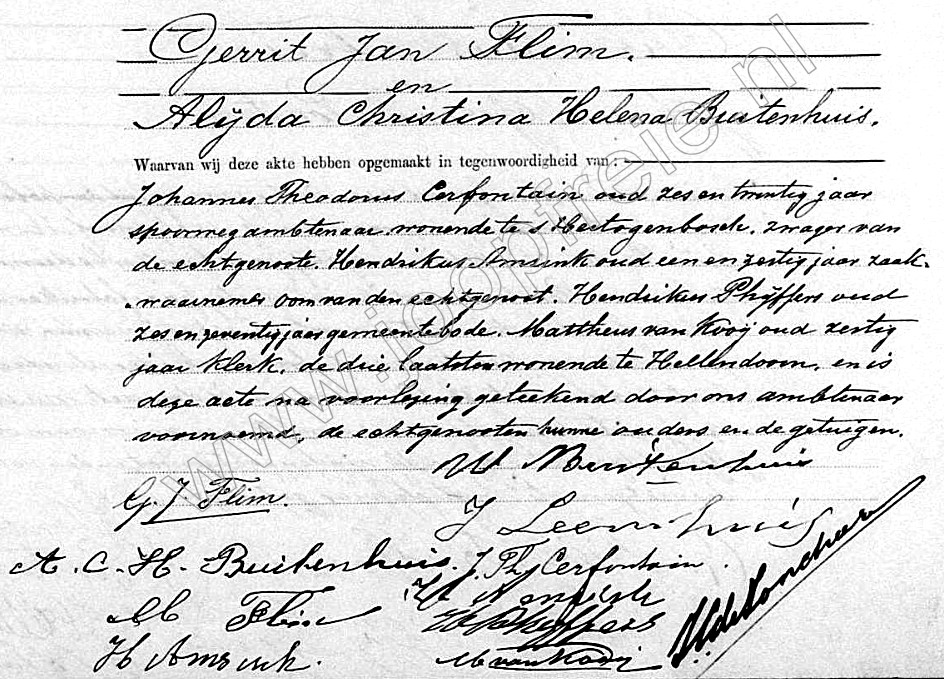 Gerrit Jan Flim.
en
Alijda Christina Helena Buitenhuis.
Waarvan wij deze akte hebben opgemaakt in tegenwoordigheid van:
Johannes Theodorus Cerfontain oud zes en twintig jaar
spoorwegambtenaar wonende te s Hertogenbosch, zwager van
de echtgenoote. Hendrikus Amsink oud een en zestig jaar zaak-
waarnemer oom van den echtgenoot. Hendrikus Phijffers oud
zes en zeventig jaar gemeentebode. Mattheus van Kooij oud zestig
jaar klerk, de drie laatsten wonende te Hellendoorn, en is
deze acte na voorlezing geteekend door ons ambtenaar
voornoemd, de echtgenooten hunne ouders en de getuigen.
W Buitenhuis
G. J. Flim.
J Leemhuis
A. C. H. Buitenhuis. J. Th. Cerfontain.
Flim H Amsink
H Phijffers
H Amsink. M van Kooij
www.jooptreie.nl